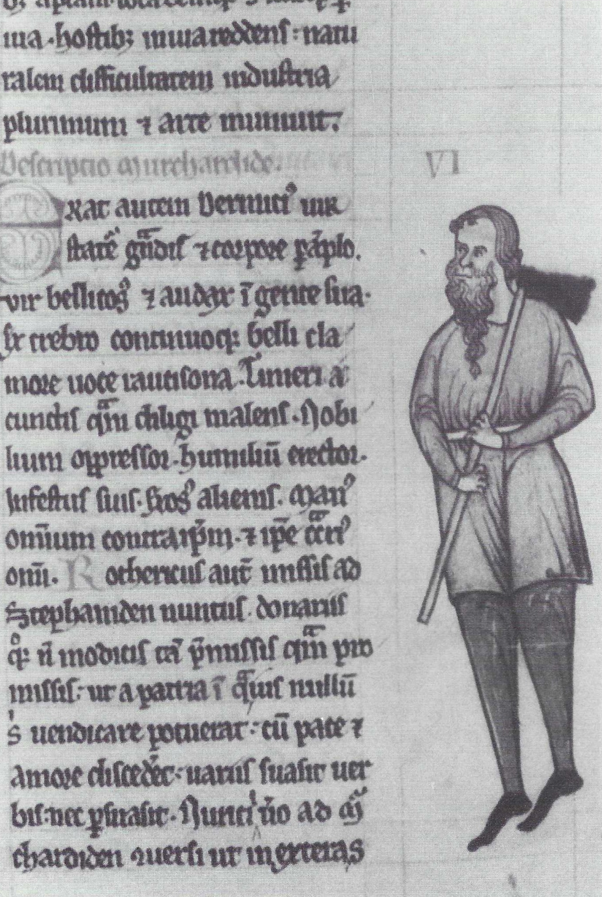 ua. hostib; inuia reddens: natu
ralem difficultatem industria
plurimum ⁊ arte muniuit.
Descriptio murchardide.
Erat autem Dermiciꝰ uir
staturẽ gͣndis ⁊ corpore ꝑãplo.
uir bellicosꝰ ⁊ audax ĩ gente sua.
Ex crebro continuoq; belli cla
more uoce raucisona. Timeri a
cunctis qͣm diligi malens. Nobi
lium oppressor. humiliũ erector.
Infestus suis. Exosꝰ alienis. Manꝰ
omnium contra ipm̃. ⁊ ip̃e ꝯͣriꝰ
omĩ. Rothericus aut̃ missis ad
Stephaniden nuntiis. donariis
qͦ; ñ modicis tã p̃missis qͣm pro
missis: ut a patria ĩ qͣ ius nullũ
sͥ uendicare potuerat: cũ pace ⁊
amore disceder̃et: uariis suasit uer
bis: nec ꝑsuasit. Nuntii ũo ad mͬ
chardiden ꝯuersi ut in exteras
VI